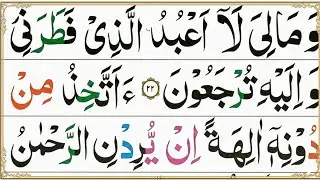 وَمَا لِیَ لَاۤ اَعْبُدُ الَّذِیْ فَطَرَنِیْ
وَ اِلَیْهِ تُرْجَعُوْنَ ﴿۲۲﴾ ءَاَتَّخِذُ مِنْ
دُوْنِهٖۤ اٰلِهَةً اِنْ یُّرِدْنِ الرَّحْمٰنُ